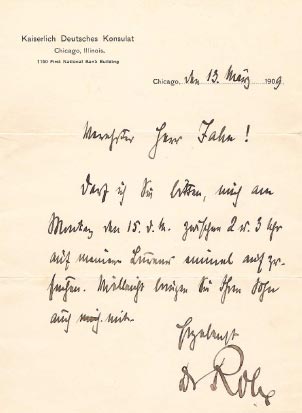 Kaiserlich Deutsches Konsulat
Chicago, Illinois.
1150 First National Bank Building
Chicago, den 13. März 1909
Verehrter Herr Jahn!
Darf ich Sie bitten, mich am
Montag den 15. d. M. zwischen 2 u. 3 Uhr
auf meinem Bureau einmal auf zu-
suchen. Vielleicht bringen Sie Ihren Sohn
auch mit.
Ergebenst
Dr